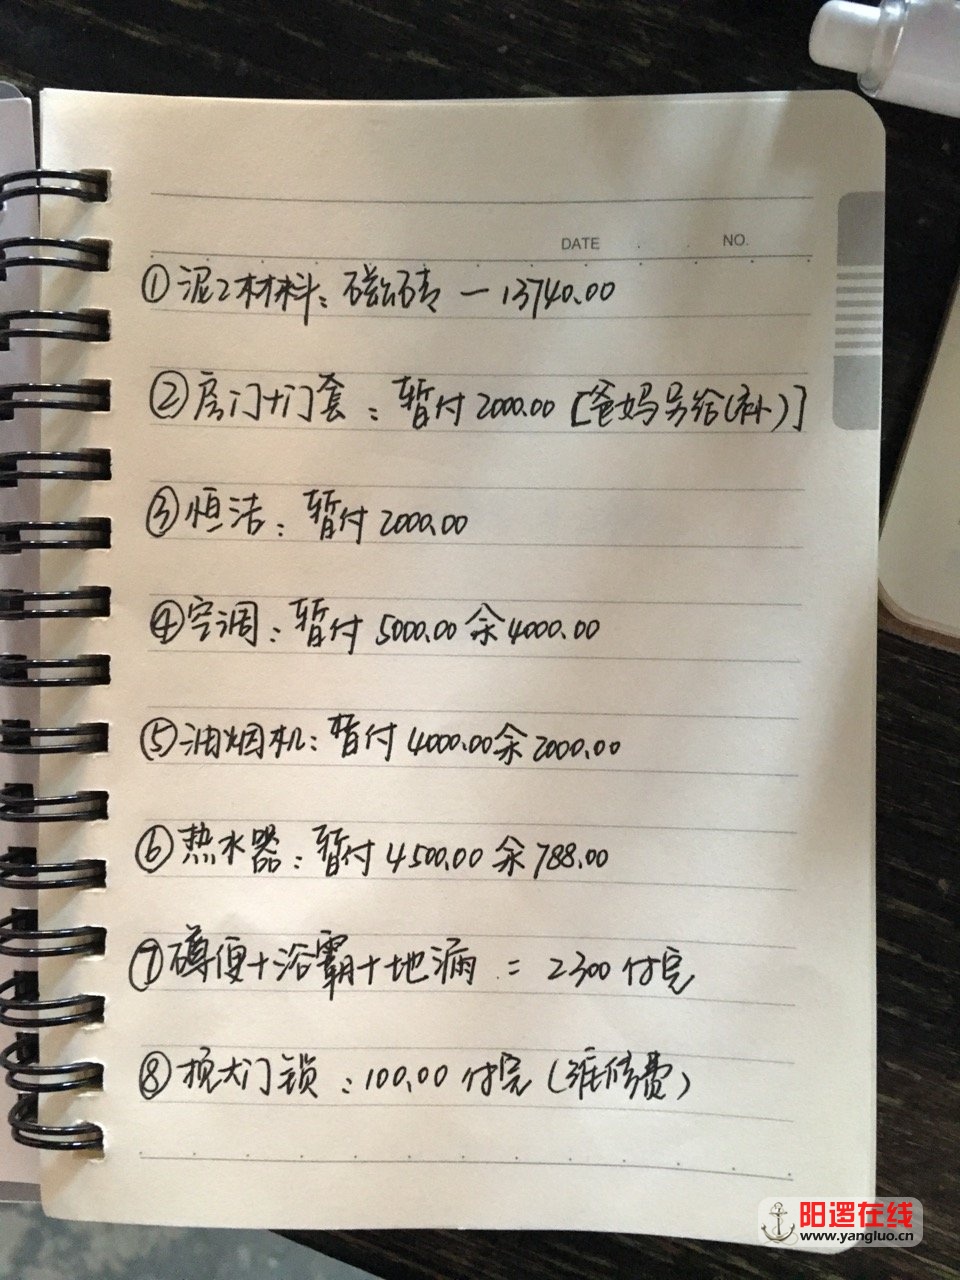 DATE . . NO.
①泥工材料：磁砖 — 13740.00
②房门+门套：暂付2000.00 [爸妈另给(补)]
③恒洁：暂付2000.00
④空调：暂付5000.00余4000.00
⑤油烟机：暂付4000.00余2000.00
⑥热水器：暂付4500.00余788.00
⑦蹲便+浴霸+地漏 = 2300付完
⑧换大门锁：100.00付完(维修费)
阳逻在线
www.yangluo.cn